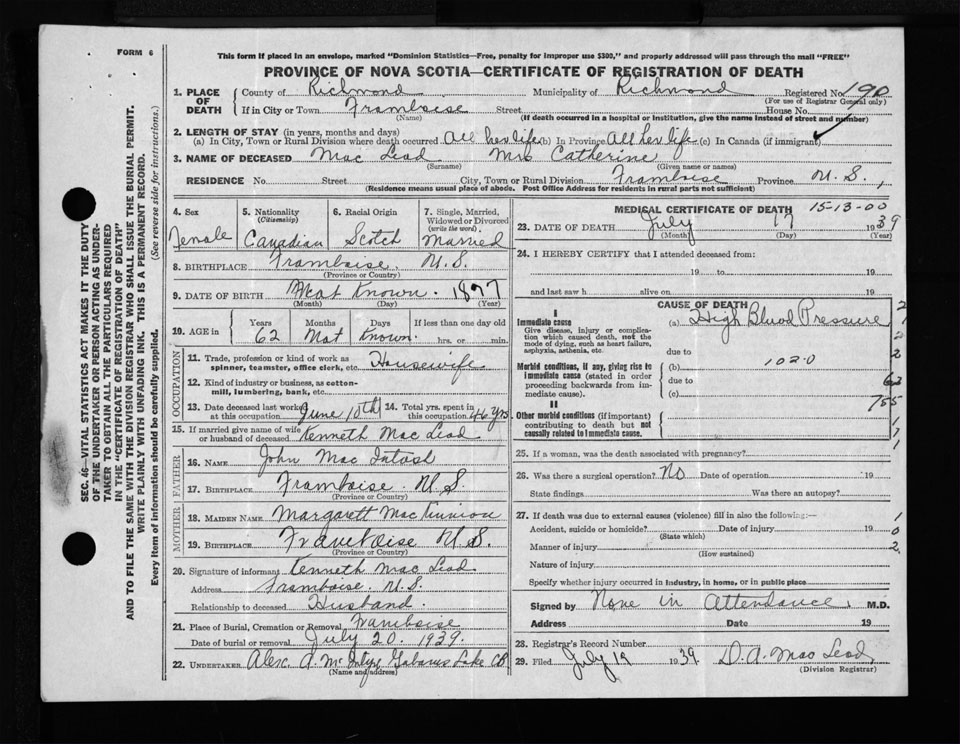 FORM 6
This form if placed in an envelope, marked "Dominion Statistics—Free, penalty for improper use $300," and properly addressed will pass through the mail "FREE"
PROVINCE OF NOVA SCOTIA—CERTIFICATE OF REGISTRATION OF DEATH
1. PLACE OF DEATH County of Richmond Municipality of Richmond Registered No. 190
(For use of Registrar General only)
If in City or Town Framboise Street House No.
(Name) (If death occurred in a hospital or institution, give the name instead of street and number)
2. LENGTH OF STAY (in years, months and days)
(a) In City, Town or Rural Division where death occurred All her life (b) In Province All her life (c) In Canada (if immigrant)
3. NAME OF DECEASED Mac Leod Mrs Catherine
(Surname) (Given name or names)
RESIDENCE No. Street City, Town or Rural Division Framboise Province N.S.
(Residence means usual place of abode. Post Office Address for residents in rural parts not sufficient)
SEC. 46—VITAL STATISTICS ACT MAKES IT THE DUTY
OF THE UNDERTAKER OR PERSON ACTING AS UNDER-
TAKER TO OBTAIN ALL THE PARTICULARS REQUIRED
IN THE "CERTIFICATE OF REGISTRATION OF DEATH"
AND TO FILE THE SAME WITH THE DIVISION REGISTRAR WHO SHALL ISSUE THE BURIAL PERMIT.
WRITE PLAINLY WITH UNFADING INK. THIS IS A PERMANENT RECORD.
Every item of information should be carefully supplied. (See reverse side for instructions.)
4. Sex Female
5. Nationality (Citizenship) Canadian
6. Racial Origin Scotch
7. Single, Married, Widowed or Divorced (write the word) Married
8. BIRTHPLACE Framboise, N.S.
(Province or Country)
9. DATE OF BIRTH Not Known. 1877
(Month) (Day) (Year)
10. AGE in Years Months Days If less than one day old
62 Not Known hrs. or min.
OCCUPATION
11. Trade, profession or kind of work as spinner, teamster, office clerk, etc. Housewife
12. Kind of industry or business, as cotton-mill, lumbering, bank, etc.
13. Date deceased last worked at this occupation June 10th 14. Total yrs. spent in this occupation 46 yrs
15. If married give name of wife or husband of deceased Kenneth Mac Leod
FATHER
16. Name John Mac Intosh
17. Birthplace Framboise. N.S.
(Province or Country)
MOTHER
18. Maiden Name Margarett MacKinnion
19. Birthplace Framboise N.S.
(Province or Country)
20. Signature of informant Kenneth Mac Leod
Address Framboise. N.S.
Relationship to deceased Husband.
21. Place of Burial, Cremation or Removal Framboise
Date of burial or removal July 20. 1939.
22. UNDERTAKER Alex. A. McIntyre Gabarus Lake CB
(Name and address)
MEDICAL CERTIFICATE OF DEATH 15-13-00
23. DATE OF DEATH July 17 1939
(Month) (Day) (Year)
24. I HEREBY CERTIFY that I attended deceased from:
19 to 19
and last saw h alive on 19
CAUSE OF DEATH
I
Immediate cause
Give disease, injury or complication which caused death, not the mode of dying, such as heart failure, asphyxia, asthenia, etc.
(a) High Blood Pressure
due to
Morbid conditions, if any, giving rise to immediate cause (stated in order proceeding backwards from immediate cause).
(b) 1020
due to
(c)
II
Other morbid conditions (if important) contributing to death but not causally related to immediate cause.
25. If a woman, was the death associated with pregnancy?
26. Was there a surgical operation? No Date of operation 19
State findings Was there an autopsy?
27. If death was due to external causes (violence) fill in also the following:—
Accident, suicide or homicide? Date of injury 19
(State which)
Manner of injury
(How sustained)
Nature of injury
Specify whether injury occurred in industry, in home, or in public place
Signed by None in Attendance. M.D.
Address Date 19
28. Registrar's Record Number
29. Filed July 19 1939. D.A. Mac Leod
(Division Registrar)